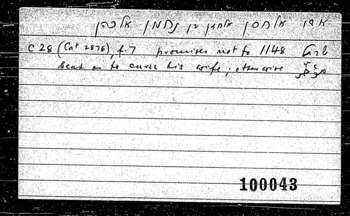 אבו אלחסן אלחזן בן נחמן אלכהן
C 28 (Cat 2876), f. 7 promises not to 1148
beat or to curse his wife, otherwise
100043